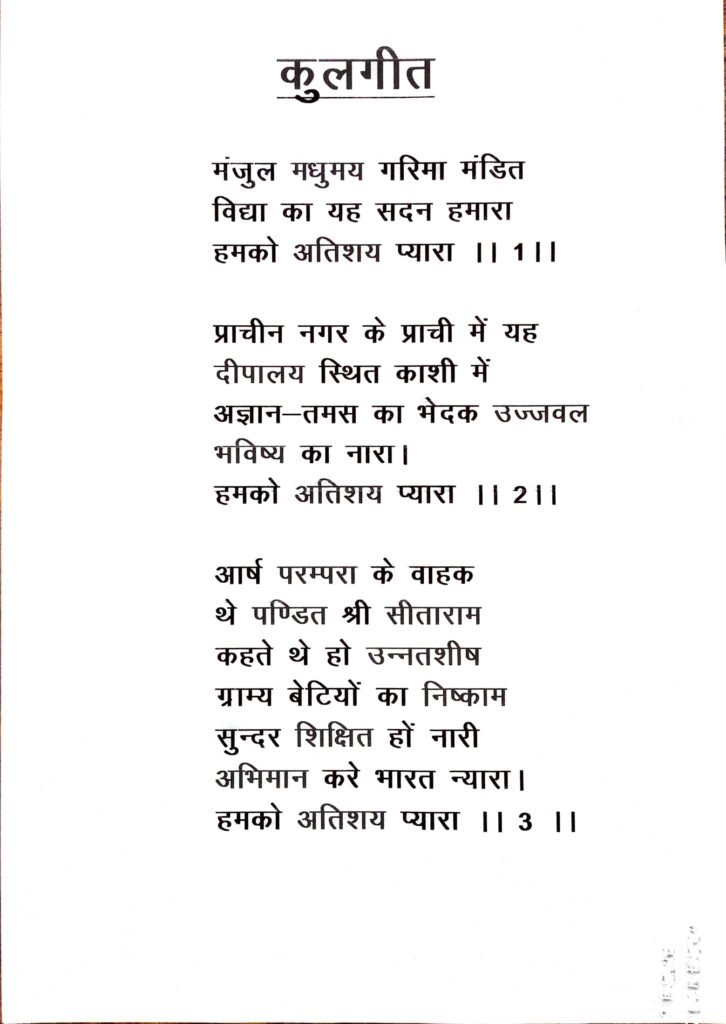 कुलगीत
मंजुल मधुमय गरिमा मंडित
विद्या का यह सदन हमारा
हमको अतिशय प्यारा ।। 1।।
प्राचीन नगर के प्राची में यह
दीपालय स्थित काशी में
अज्ञान–तमस का भेदक उज्जवल
भविष्य का नारा।
हमको अतिशय प्यारा ।। 2।।
आर्ष परम्परा के वाहक
थे पण्डित श्री सीताराम
कहते थे हो उन्नतशीष
ग्राम्य बेटियों का निष्काम
सुन्दर शिक्षित हों नारी
अभिमान करे भारत न्यारा।
हमको अतिशय प्यारा ।। 3 ।।